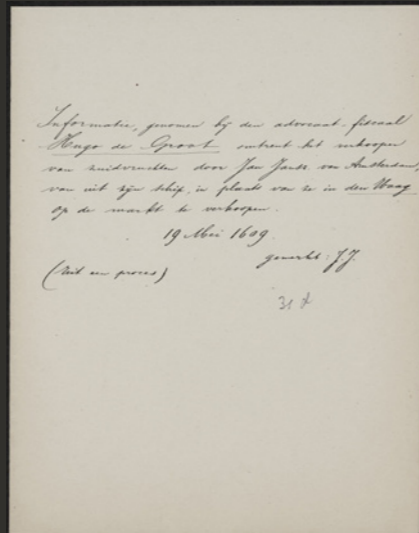 Informatie, genomen bij den advocaat-fiscaal
Hugo de Groot omtrent het verkoopen
van zuidvruchten door Jan Jansz. van Amsterdam,
van uit zijn schip, in plaats van ze in den Waag
op de markt te verkoopen.
19 Mei 1609.
gemerkt: J.J.
(Uit een proces)
31 d